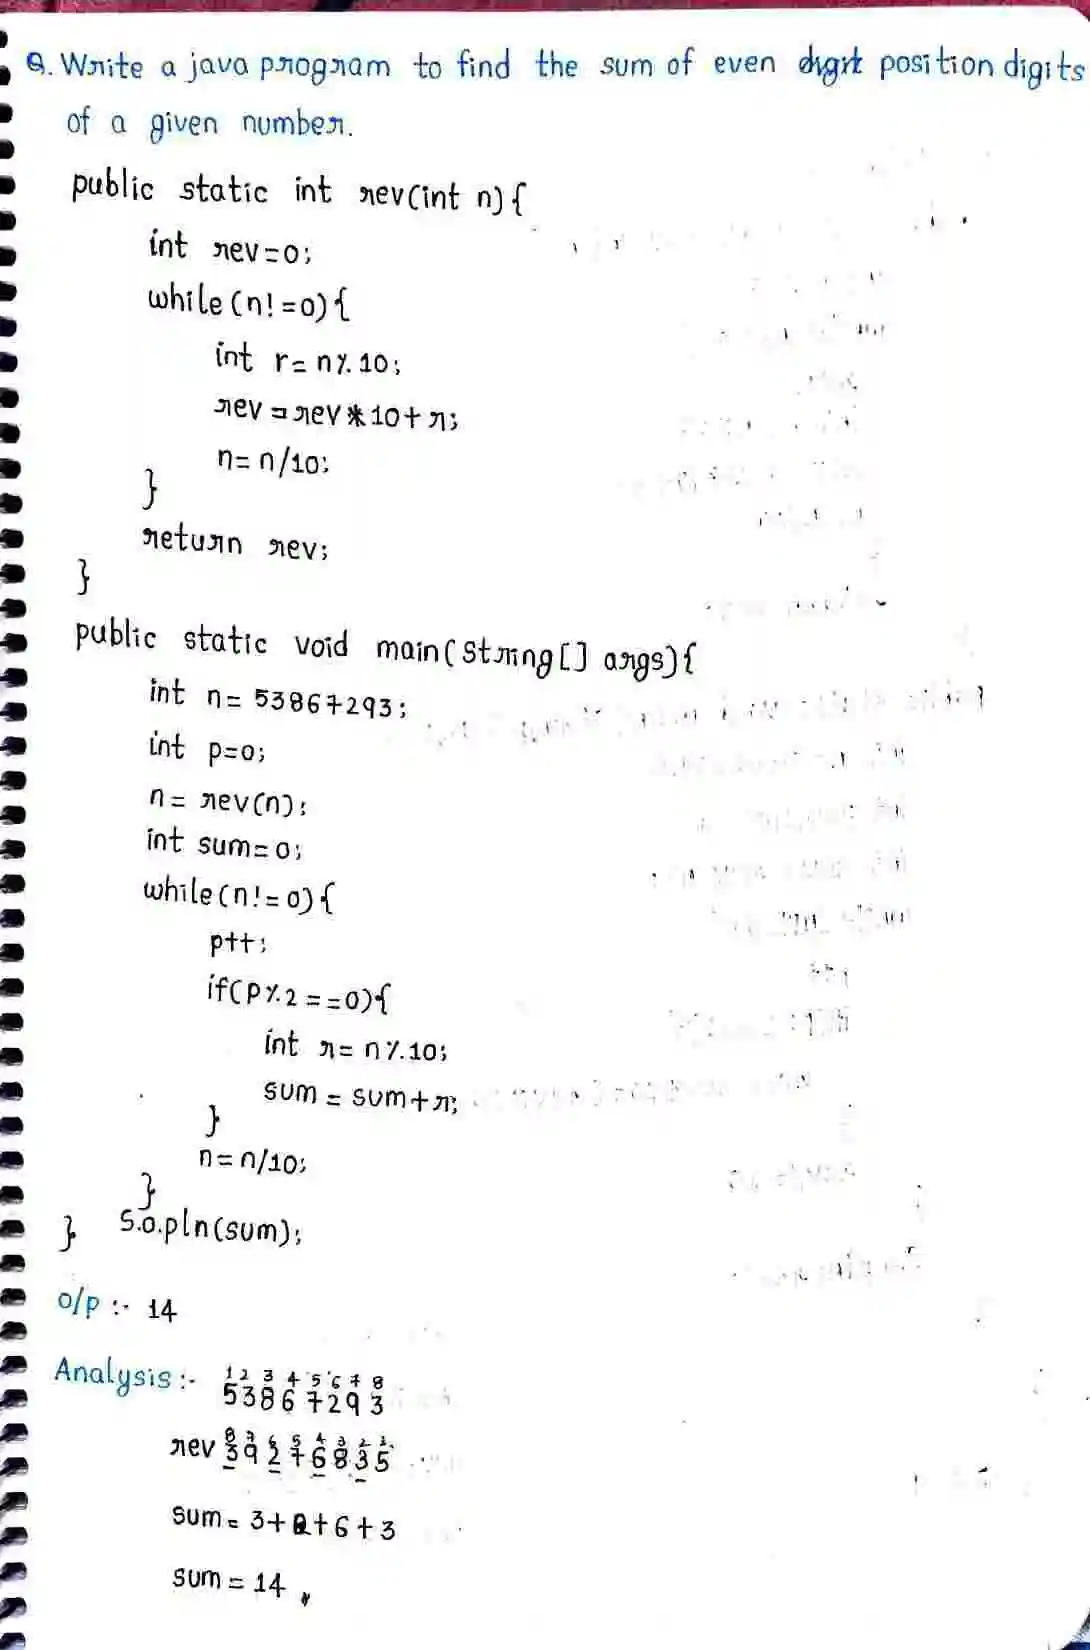 Q. Write a java program to find the sum of even position digits
of a given number.
public static int rev(int n){
int rev=0;
while(n!=0){
int r= n%10;
rev=rev*10+r;
n= n/10;
}
return rev;
}
public static void main(String[] args){
int n= 53867293;
int p=0;
n= rev(n);
int sum=0;
while(n!=0){
p++;
if(p%2==0){
int r= n%10;
sum = sum+r;
}
n=n/10;
}
} S.o.pln(sum);
o/p :- 14
1 2 3 4 5 6 7 8
Analysis:- 53867293
8 7 6 5 4 3 2 1
rev 39276835
sum= 3+2+6+3
sum = 14